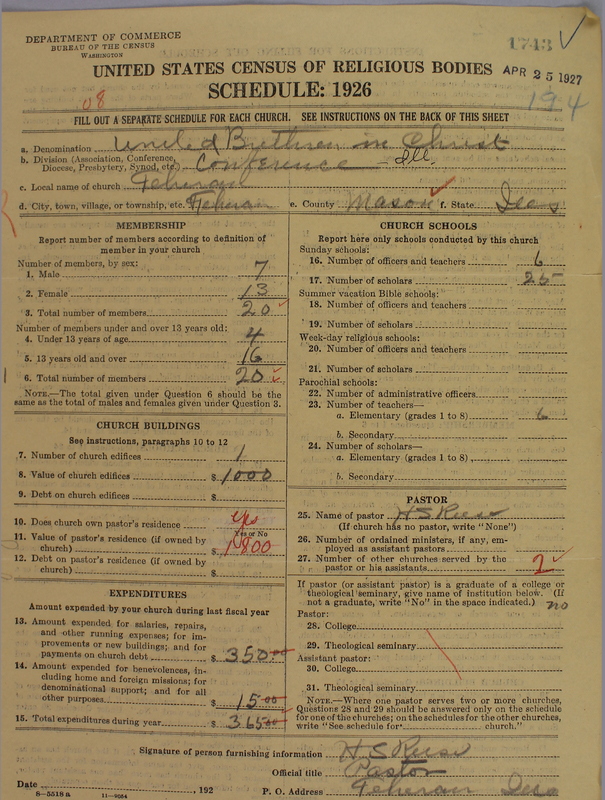 DEPARTMENT OF COMMERCE
BUREAU OF THE CENSUS
WASHINGTON
1743 ✓
UNITED STATES CENSUS OF RELIGIOUS BODIES
APR 25 1927
SCHEDULE: 1926
08
194
FILL OUT A SEPARATE SCHEDULE FOR EACH CHURCH. SEE INSTRUCTIONS ON THE BACK OF THIS SHEET
a. Denomination United Brethren in Christ
b. Division (Association, Conference, Diocese, Presbytery, Synod, etc.) Conference Ill.
c. Local name of church Teheran
d. City, town, village, or township, etc. Teheran e. County Mason f. State Ills
MEMBERSHIP
Report number of members according to definition of
member in your church
Number of members, by sex:
1. Male 7
2. Female 13
3. Total number of members 20
Number of members under and over 13 years old:
4. Under 13 years of age 4
5. 13 years old and over 16
6. Total number of members 20
NOTE.—The total given under Question 6 should be
same as the total of males and females given under Question 3.
CHURCH BUILDINGS
See instructions, paragraphs 10 to 12
7. Number of church edifices 1
8. Value of church edifices $ 1000
9. Debt on church edifices $
10. Does church own pastor's residence yes
Yes or No
11. Value of pastor's residence (if owned by
church) $ 1800
12. Debt on pastor's residence (if owned by
church) $
EXPENDITURES
Amount expended by your church during last fiscal year
13. Amount expended for salaries, repairs,
and other running expenses; for im-
provements or new buildings; and for
payments on church debt $ 350.00
14. Amount expended for benevolences, in-
cluding home and foreign missions; for
denominational support; and for all
other purposes $ 15.00
15. Total expenditures during year $ 365.00
CHURCH SCHOOLS
Report here only schools conducted by this church
Sunday schools:
16. Number of officers and teachers 6
17. Number of scholars 25
Summer vacation Bible schools:
18. Number of officers and teachers
19. Number of scholars
Week-day religious schools:
20. Number of officers and teachers
21. Number of scholars
Parochial schools:
22. Number of administrative officers
23. Number of teachers—
a. Elementary (grades 1 to 8) 6
b. Secondary
24. Number of scholars—
a. Elementary (grades 1 to 8)
b. Secondary
PASTOR
25. Name of pastor H S Reese
(If church has no pastor, write "None")
26. Number of ordained ministers, if any, em-
ployed as assistant pastors
27. Number of other churches served by the
pastor or his assistants 2
If pastor (or assistant pastor) is a graduate of a college or
theological seminary, give name of institution below. (If
not a graduate, write "No" in the space indicated.) no
Pastor:
28. College
29. Theological seminary
Assistant pastor:
30. College
31. Theological seminary
NOTE.—Where one pastor serves two or more churches,
Questions 28 and 29 should be answered only on the schedule
for one of the churches; on the schedules for the other churches,
write "See schedule for church."
Signature of person furnishing information H S Reese
Official title Pastor
Date , 192 P. O. Address Teheran Ills
8—5518 a 11—9084